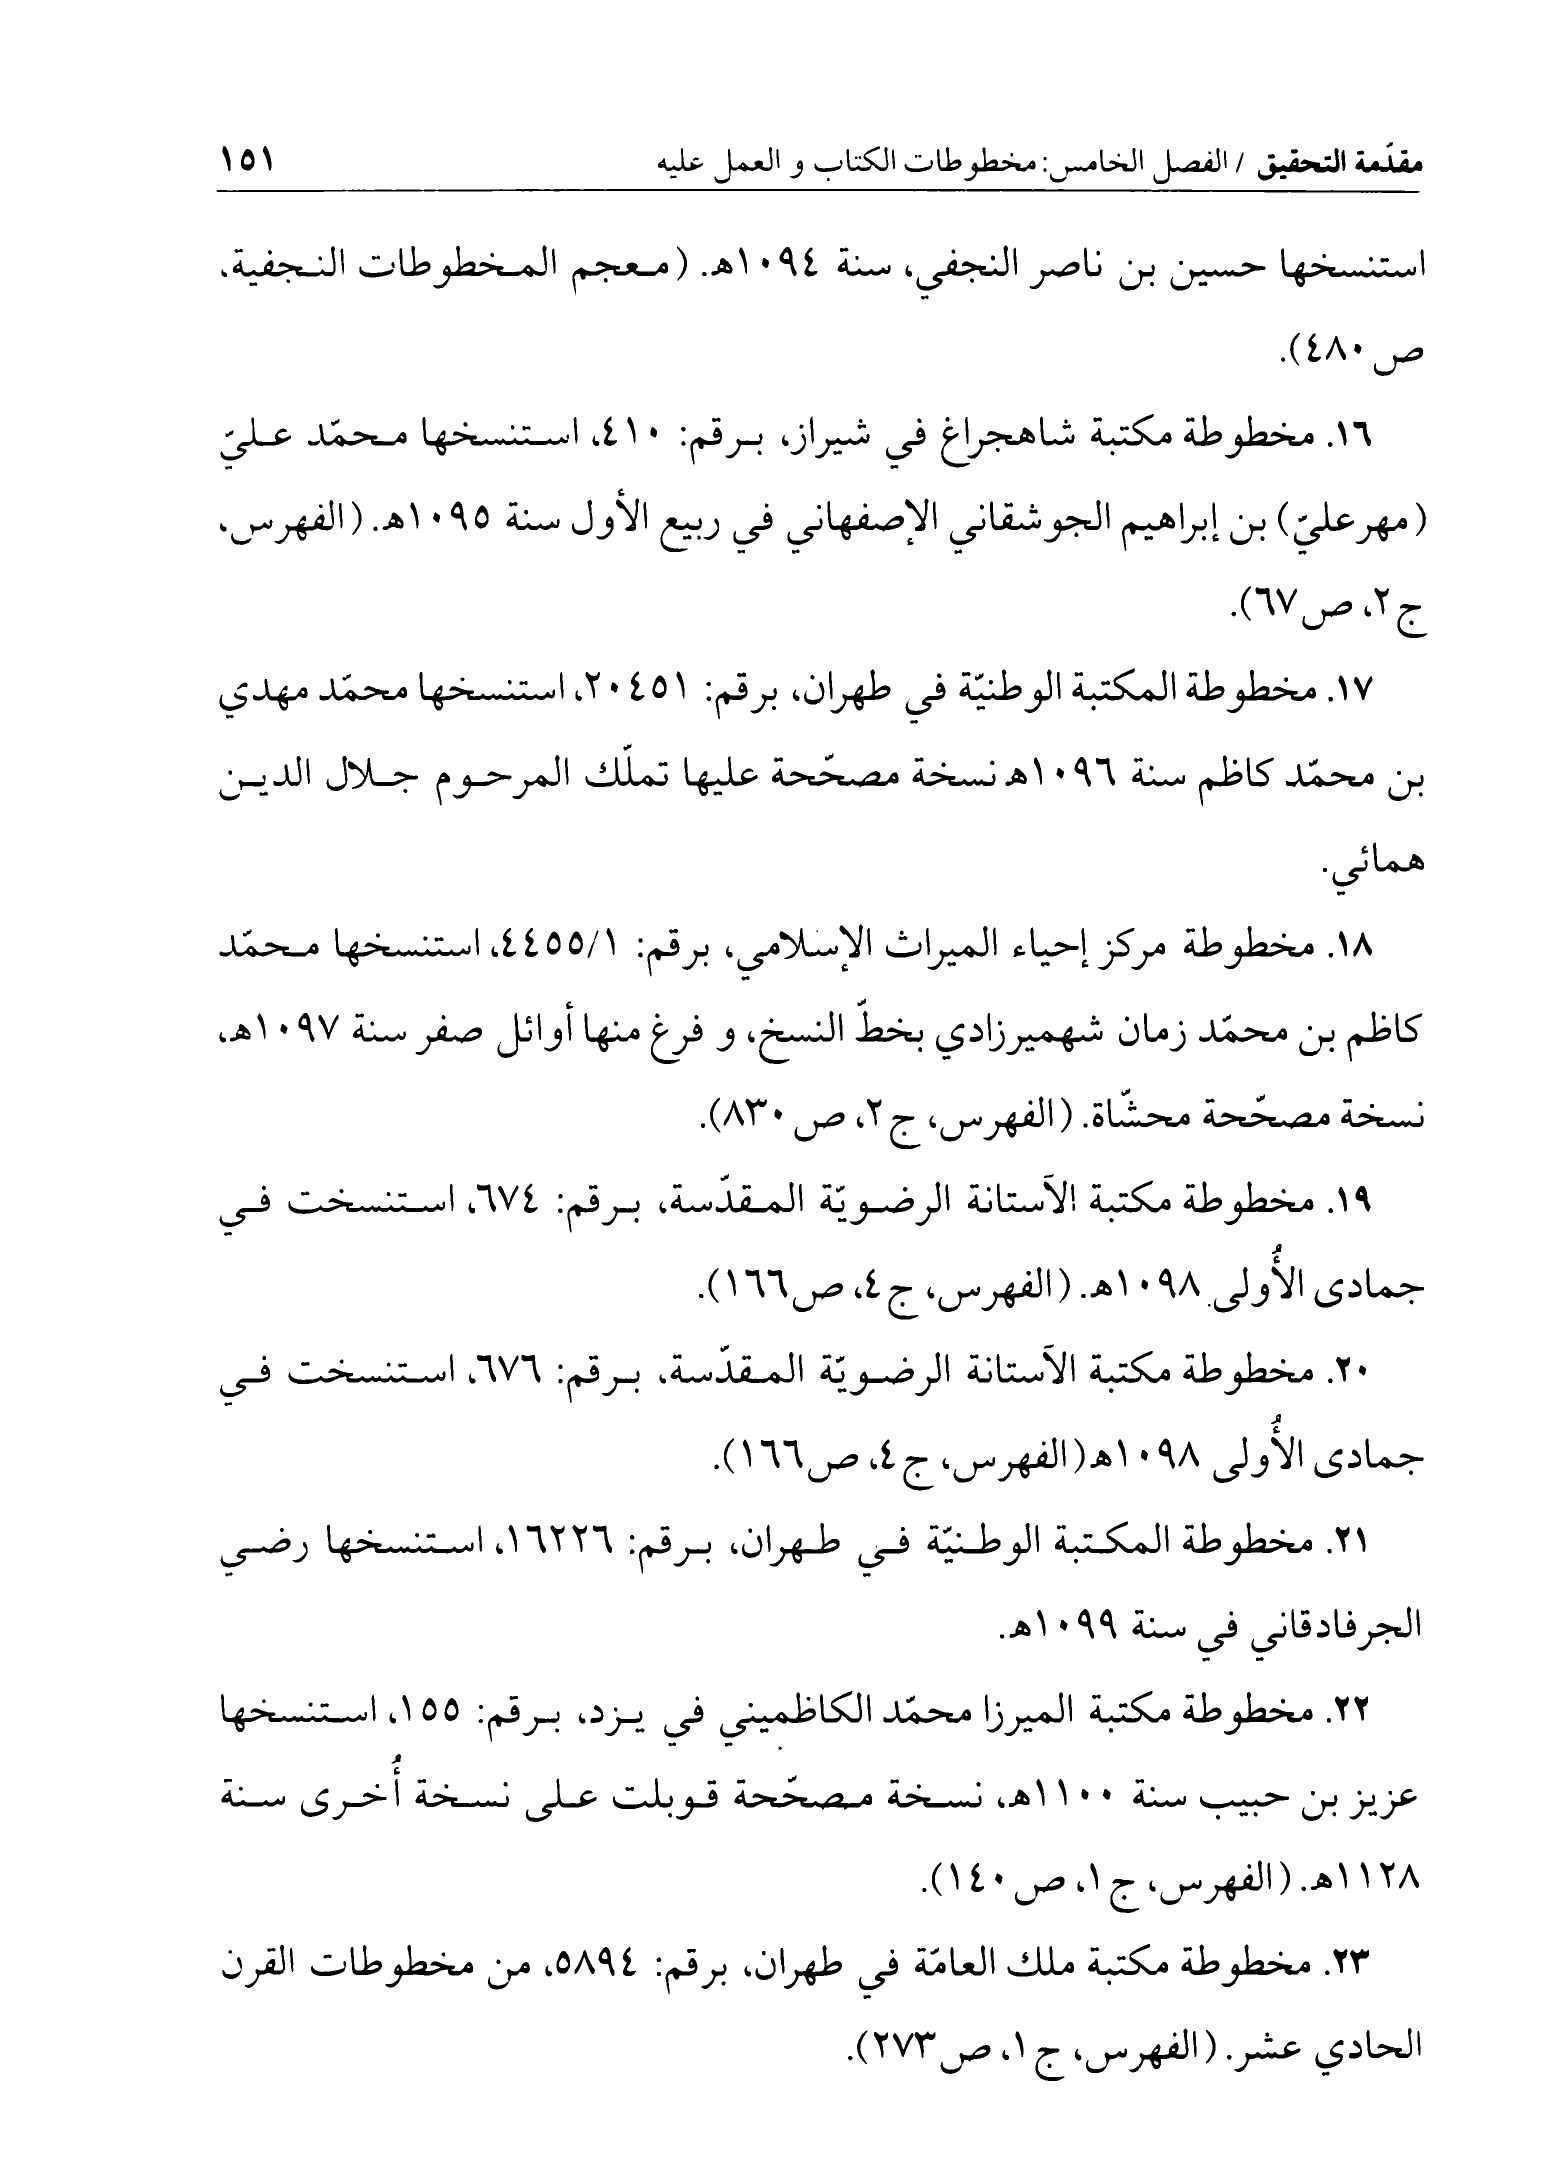 مقدّمة التحقيق / الفصل الخامس: مخطوطات الكتاب و العمل عليه ١٥١
استنسخها حسين بن ناصر النجفي، سنة ١٠٩٤هـ. (معجم المخطوطات النجفية،
ص ٤٨٠).
١٦. مخطوطة مكتبة شاهجراغ في شيراز، برقم: ٤١٠، استنسخها محمّد عليّ
(مهرعليّ) بن إبراهيم الجوشقاني الإصفهاني في ربيع الأول سنة ١٠٩٥هـ. (الفهرس،
ج ٢، ص ٦٧).
١٧. مخطوطة المكتبة الوطنيّة في طهران، برقم: ٢٠٤٥١، استنسخها محمّد مهدي
بن محمّد كاظم سنة ١٠٩٦هـ نسخة مصحّحة عليها تملّك المرحوم جلال الدين
همائي.
١٨. مخطوطة مركز إحياء الميراث الإسلامي، برقم: ٤٤٥٥/١، استنسخها محمّد
كاظم بن محمّد زمان شهميرزادي بخطّ النسخ، و فرغ منها أوائل صفر سنة ١٠٩٧هـ،
نسخة مصحّحة محشّاة. (الفهرس، ج ٢، ص ٨٣٠).
١٩. مخطوطة مكتبة الآستانة الرضويّة المقدّسة، برقم: ٦٧٤، استنسخت في
جمادى الأُولى ١٠٩٨هـ. (الفهرس، ج ٤، ص ١٦٦).
٢٠. مخطوطة مكتبة الآستانة الرضويّة المقدّسة، برقم: ٦٧٦، استنسخت في
جمادى الأُولى ١٠٩٨هـ (الفهرس، ج ٤، ص ١٦٦).
٢١. مخطوطة المكتبة الوطنيّة في طهران، برقم: ١٦٢٢٦، استنسخها رضي
الجرفادقاني في سنة ١٠٩٩هـ.
٢٢. مخطوطة مكتبة الميرزا محمّد الكاظميني في يزد، برقم: ١٥٥، استنسخها
عزيز بن حبيب سنة ١١٠٠هـ، نسخة مصحّحة قوبلت على نسخة أُخرى سنة
١١٢٨هـ. (الفهرس، ج ١، ص ١٤٠).
٢٣. مخطوطة مكتبة ملك العامّة في طهران، برقم: ٥٨٩٤، من مخطوطات القرن
الحادي عشر. (الفهرس، ج ١، ص ٢٧٣).